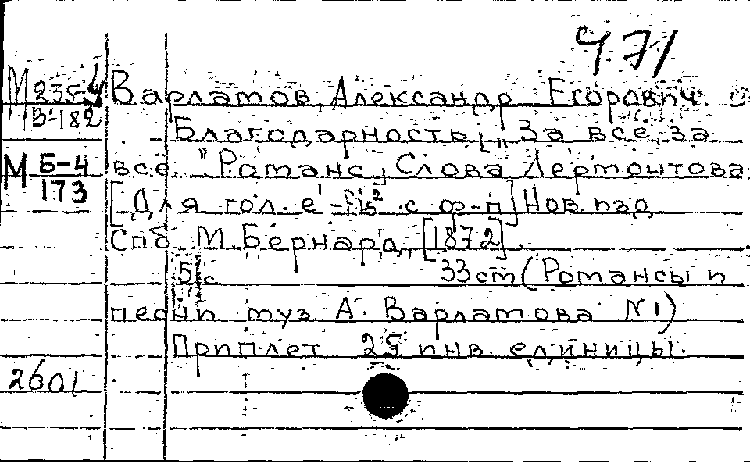 471
М 235 Варламов, Александр Егорович.
Благодарность. [„За все, за
М Б-4 все..." Романс, Слова Лермонтова.
173 [Для гол. e¹-fis² с ф-п] Нов. изд
Спб. М. Бернард, [1872].
5 с 33 cm (Романсы и
песни муз А. Варламова № 1)
Приплет 25 инв единицы.
2601